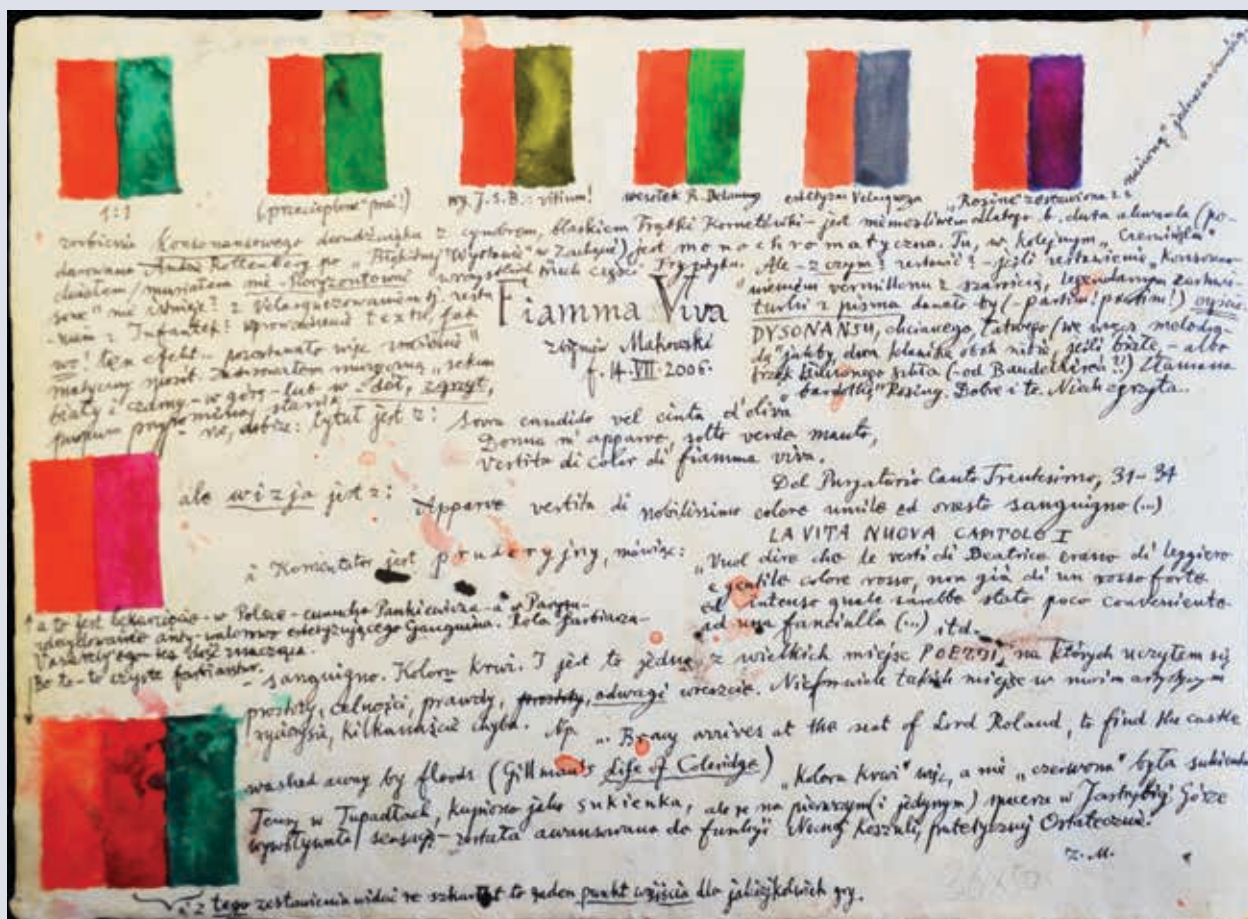 1:1
(przecieplone
J.S.B.: vitium!
wesołek R. Delaunay
estetyzm Velasqueza
"Rosine zestawiona z
naiwną" jednoznacznością
zderzenie konsonansowego dwudźwięku z cynobrem, blaskiem Frytki Kometki - jest niemożliwe dlatego b. duża akwarela (po-
darowana Andzie Rottenberg po "Błękitnej Wystawie" w Zachęcie) jest monochromatyczna. Tu, w kolejnym
musiałem nie wszystkich trzech części Tryptyku. Ale - z czym? zestawić? - jeśli zestawienie "konsono-
sowe" nie istnieje? z
wemiern vermillonu z szarością, legendarnym zachwi-
kum z Infantek? wprowadzenie textu, jak
turki z pisma dałoby (- partim! partim!) oycie
wo! ten efekt - pozostawało więc
DYSONANSU, chcianego, łatwego (we wręcz melody-
Fiamma Viva
Zbigniew Makowski
f. 14. VII. 2006.
matyczny
"jakby dwa kolanka obok siebie, jeśli białe - albo
biały i czarny - w górę - lub w dół, zgrzyt,
trzask szkła (- od Baudelaire'a?!) złamana
"Rosiny. Dobre i te. Niech zgrzyta..
- nie, dobrze: tytuł jest z: Sovra candido vel cinta d'oliva
Donna m'apparve, sotto verde manto,
vestita di color di fiamma viva.
Del Purgatorio Canto Trentesimo, 31-34
ale wizja jest z: Apparve vestita di nobilissimo colore umile ed onesto sanguigno (...)
LA VITA NUOVA CAPITOLO I
a Komentator jest pruderyjny, mówiąc:
"Vuol dire che le vesti di Beatrice erano di leggiero
e gentile colore rosso, non già di un rosso forte
ed intenso quale sarebbe stato poco conveniente
ad una fanciulla (...) itd.
a to jest lekarstwo - w Polsce - Pankiewicza - a w Paryżu
anty-walorowo estetyzującego Gauguina. Rola farbiarza-
Vasarely'ego też dość znacząca.
Bo to - to czyste farbiarstwo.
- sanguigno. Koloru krwi. I jest to jedno z wielkich miejsc POEZJI, na których uczyłem się
prostoty, celności, prawdy, prostoty, odwagi wreszcie. Niewiele takich miejsc w moim artystycznym
życiorysie, kilkanaście chyba. Np. "Bracy arrives at the seat of Lord Roland, to find the castle
washed away by floods (Gillman's Life of Coleridge) "Koloru krwi" więc, a nie "czerwona" była sukienka
Jenny w Tupadłach, kupiona jako sukienka, ale że na pierwszym (i jedynym) spacerze w Jastrzębiej Górze
wywoływała sensację - została awansowana do funkcji Nocnej Koszuli, patetycznej Ostatecznie.
Z. M.
a z tego zestawienia widać że szkarłat to żaden punkt wyjścia dla jakiejkolwiek gry.